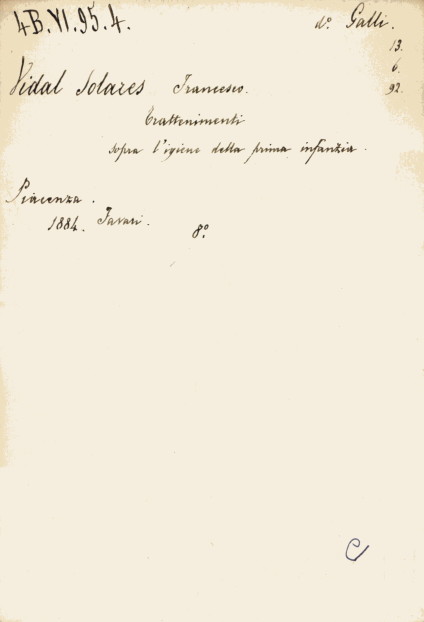 4B.VI.95.4.
d.° Galli.
13.
6.
92.
Vidal Solares Francesco.
Trattenimenti
sopra l'igiene della prima infanzia.
Piacenza.
1884. Tavari.
8.°
C